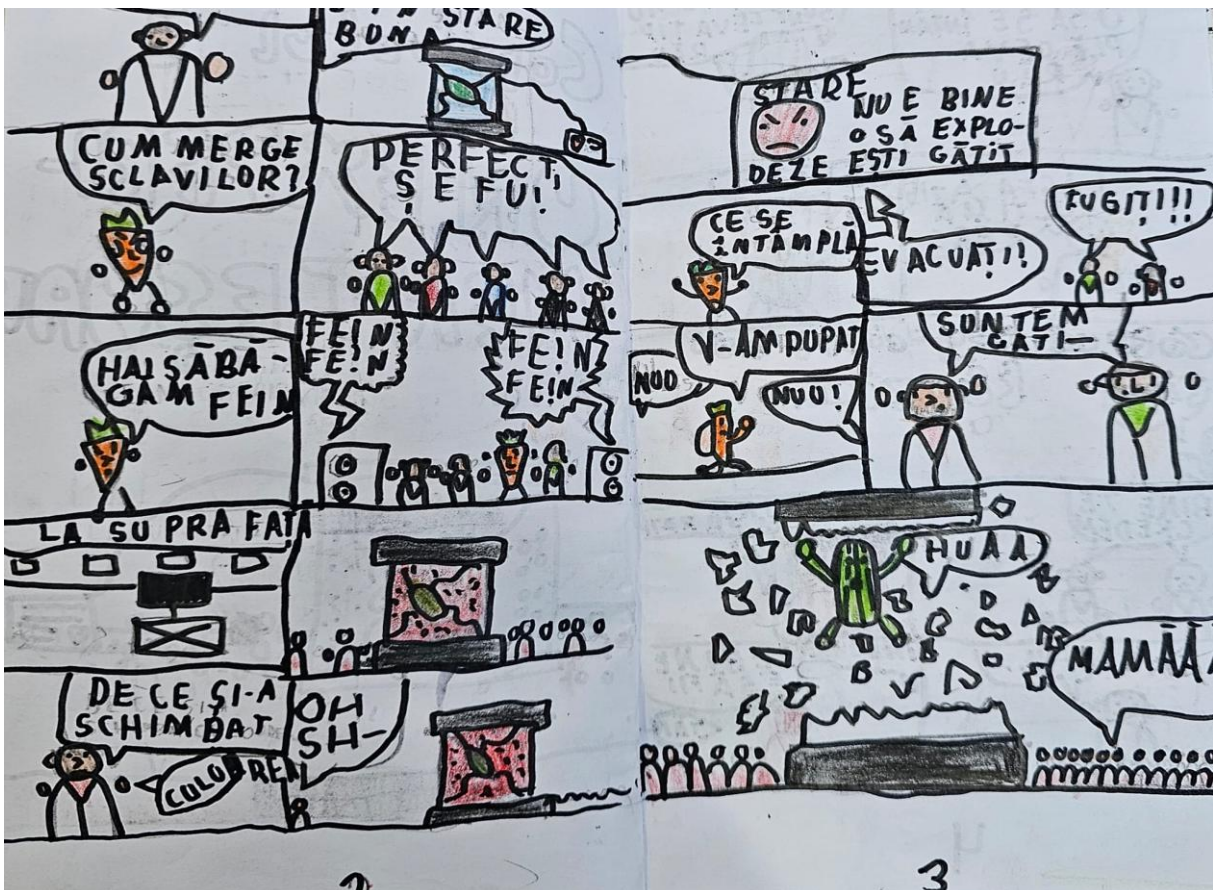 STARE
BUNĂ
CUM MERGE
SCLAVILOR?
PERFECT
ȘEFU!
HAI SĂ BĂ-
GĂM FEIN
FE!N
FE!N
FE!N
FE!N
LA SUPRAFAȚĂ
DE CE ȘI-A
SCHIMBAT
CULOAREA
OH
SH-
2
STARE
NU E BINE
O SĂ EXPLO-
DEZE EȘTI GĂTIT
CE SE
ÎNTÂMPLĂ
EVACUAȚI!
FUGIȚI!!!
NUO
V-AM PUPAT
NUU!
SUNTEM
GĂTI-
HUAA
MAMĂĂ
3